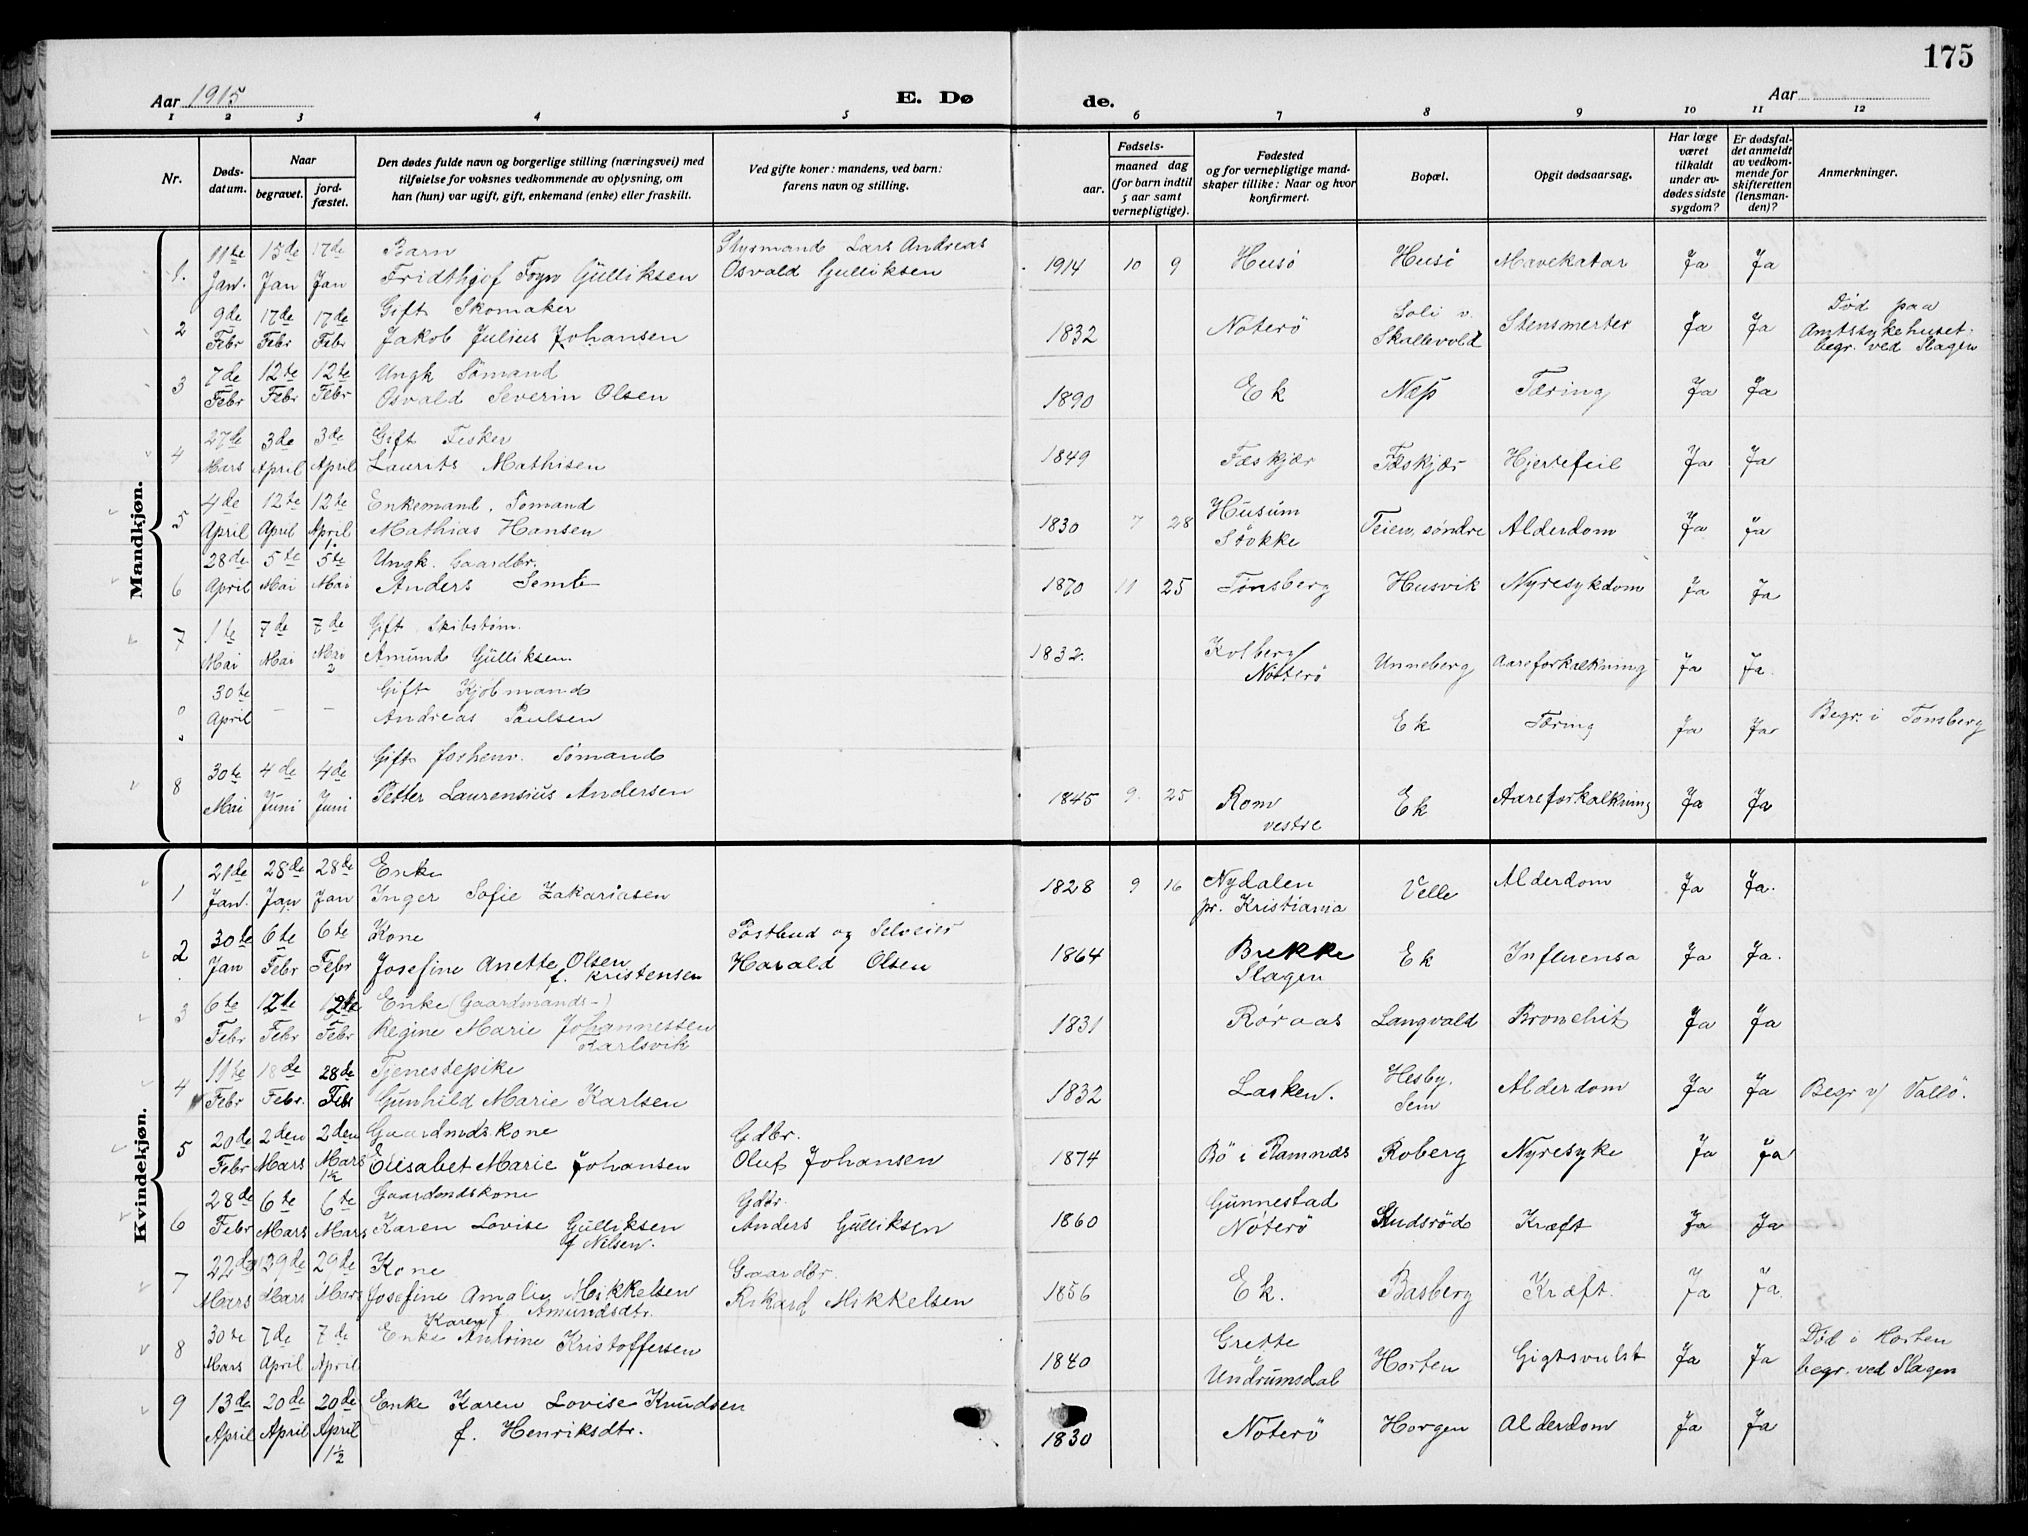 175
Aar 1915
E. Dø
de.
Aar
1 2 3 4 5 6 7 8 9 10 11 12
Nr.
Døds-
datum.
Naar
begravet.
jord-
fæstet.
Den dødes fulde navn og borgerlige stilling (næringsvei) med
tilføielse for voksnes vedkommende av oplysning, om
han (hun) var ugift, gift, enkemand (enke) eller fraskilt.
Ved gifte koner: mandens, ved barn:
farens navn og stilling.
Fødsels-
aar.
maaned dag
(for barn indtil
5 aar samt
vernepligtige).
Fødested
og for vernepligtige mand-
skaper tillike: Naar og hvor
konfirmert.
Bopæl.
Opgit dødsaarsag.
Har læge
været
tilkaldt
under av-
dødes sidste
sygdom?
Er dødsfal-
det anmeldt
av vedkom-
mende for
skifteretten
(lensman-
den)?
Anmerkninger.
Mandkjøn.
11te 15de 17de Barn Styrmand Lars Andreas
1. Jan. Jan Jan Fridthjof Fogn Gulliksen Osvald Gulliksen 1914 10 9 Husö Husö Mavekatar Ja Ja
9de 17de 17de Gift Skomaker Soli v. Död paa
2 Febr Febr Febr Jakob Julius Johansen 1832 Noterö Skallevold Stensmerter Ja Ja Amtssykehuset.
begr. ved Slagen
7de 12te 12te Ungk Sömand
3 Febr Febr Febr Osvald Severin Olsen 1890 Ek Næss Tæring Ja Ja
27de 3de 3de Gift Fisker
4 Mars April April Laurits Mathisen 1849 Fæskjær Fæskjær Hjertefeil Ja Ja
4de 12te 12te Enkemand. Sömand Husum
5 April April April Mathias Hansen 1830 7 28 Stokke Teien, søndre Alderdom Ja Ja
28de 5te 5te Ungk. Gaardbr.
6 April Mai Mai Anders Semb 1870 11 25 Tønsberg Husvik Nyresykdom Ja Ja
1te 7de 7de Gift Skibstöm. Kolberg
7 Mai Mai Mai Amund Gulliksen. 1832. Nötterö Unneberg Aareforkalkning Ja Ja.
30te Gift Kjöbmand
April – – Andreas Paulsen Ek Tæring Ja Ja Begr. i Tønsberg
30te 4de 4de Gift forhenv. Sömand
8 Mai Juni Juni Petter Laurensius Andersen 1845 9. 25 Rom Ek Aareforkalkning Ja Ja
vestre
Kvindekjøn.
21de 28de 28de Enke Nydalen
1 Jan. Jan Jan Inger Sofie Zakariasen 1828 9 16 pr. Kristiania Velle Alderdom Ja Ja.
30te 6te 6te Kone Postbud og Selveier Brekke
2 Jan Febr Febr Josefine Anette Olsen Harald Olsen 1864 Slagen Ek Influensa Ja Ja.
f. Kristensen
6te 12te 12te Enke (Gaardmands-)
3 Febr Febr Febr Regine Marie Johannessen 1831 Röraas Langvald Bronchit Ja Ja
Karlsvik
11te 18de 28de Tjenestepike Hesby.
4 Febr Febr. Febr Gunhild Marie Karlsen 1832 Lasken. Sem Alderdom Ja Ja Begr v/ Vallö.
20de 2den 2den Gaardmdskone Gdbr.
5 Febr Mars Mars Elisabet Marie Johansen Oluf Johansen 1874 Bö i Ramnæs Roberg Nyresyke Ja Ja
1½
28de 6te 6te Gaardmdskone Gdbr. Gunnestad
6 Febr Mars Mars Karen Lovise Gulliksen Anders Gulliksen 1860 Noterö Studsröd Kræft Ja Ja
f Nilsen.
22de 29de 29de Kone Gaardbr.
7 Mars Mars Mars Josefine Amalie Mikkelsen Rikard Mikkelsen 1856 Ek. Basberg Kræft. Ja Ja.
f Amundsdtr.
30te 7de 7de Enke Karen Antrine Kristoffersen Grette Död i Horten
8 Mars April April 1840 Undrumsdal Horten Gigtsvulst Ja Ja begr. ved Slagen
9 13de 20de 20de Enke Karen Lovise Knudsen
April April April f. Henriksdtr. 1830 Noterö Horgen Alderdom Ja Ja
1½